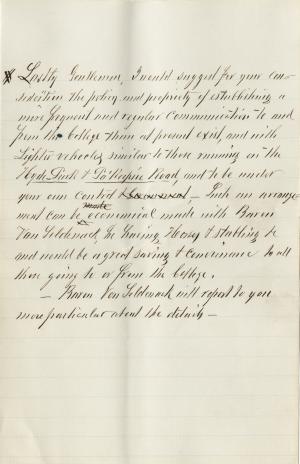 Lastly Gentlemen, I would suggest for your con-
sideration the policy and propriety of establishing a
more frequent and regular communication to and
from the College than at present exist, and with
Lighter vehicles similar to those running on the
Hyde Park & Po'Keepsie Road, and to be under
your own control — Such an arrange-
ment can be economical made with Baron
Van Seldeneck, he having Horses & stabling &c
and would be a great saving & convenience to all
those going to or from the College.
— Baron Van Seldeneck will report to you
more particular about the details —